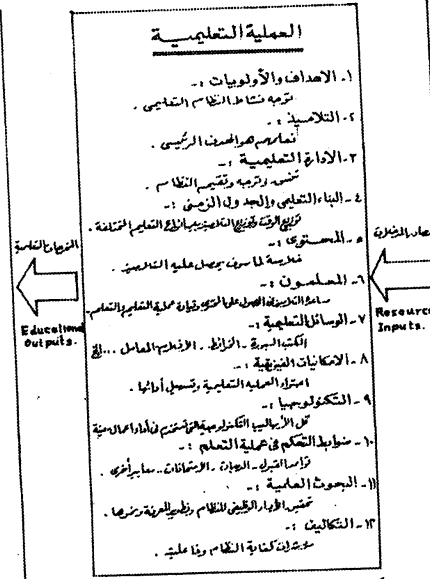 العملية التعليمية
١- الأهداف والأولويات :-
توجه نشاط النظام التعليمى .
٢- التلاميذ :-
تعلمهم هو الهدف الرئيسى .
٣- الادارة التعليمية :-
تنسق وتوجه وتقييم النظام .
٤- البناء التعليمى والجدول الزمنى :-
توزيع الوقت وتوزيع التلاميذ بين أنواع التعليم المختلفة .
٥- المحتوى :-
خلاصة لما سوف يحصل عليه التلاميذ .
٦- المعلمون :-
مساعدة التلاميذ على الحصول على المحتوى وقيادة عملية التعليم والتعلم .
٧- الوسائل التعليمية :-
الكتب السبورة - الخرائط - الأفلام المعامل ... إلخ
٨- الامكانيات الفيزيقية :-
العملية التعليمية وتسهيل أدائها .
٩- التكنولوجيا :-
كل الأساليب التكنولوجية التى تستخدم فى أداء أعمال معينة
١٠- ضوابط التحكم فى عملية التعلم :-
قواعد القبول - الامتحانات .. معايير أخرى .
١١- البحوث العلمية :-
تحسين الأداء الوظيفى للنظام وتطوير المعرفة ونموها .
١٢- التكاليف :-
مؤشرات كفاية النظام وفاعليته .
المدخلات
Resource
Inputs.
المخرجات التعليمية
Educational
Outputs.